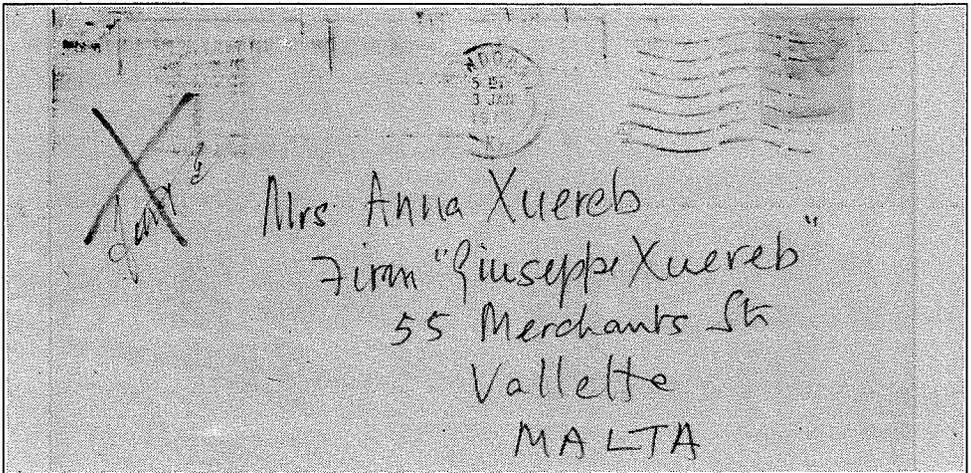 5
3 JAN
Mrs Anna Xuereb
Firm "Giuseppe Xuereb"
55 Merchants Str
Vallette
MALTA